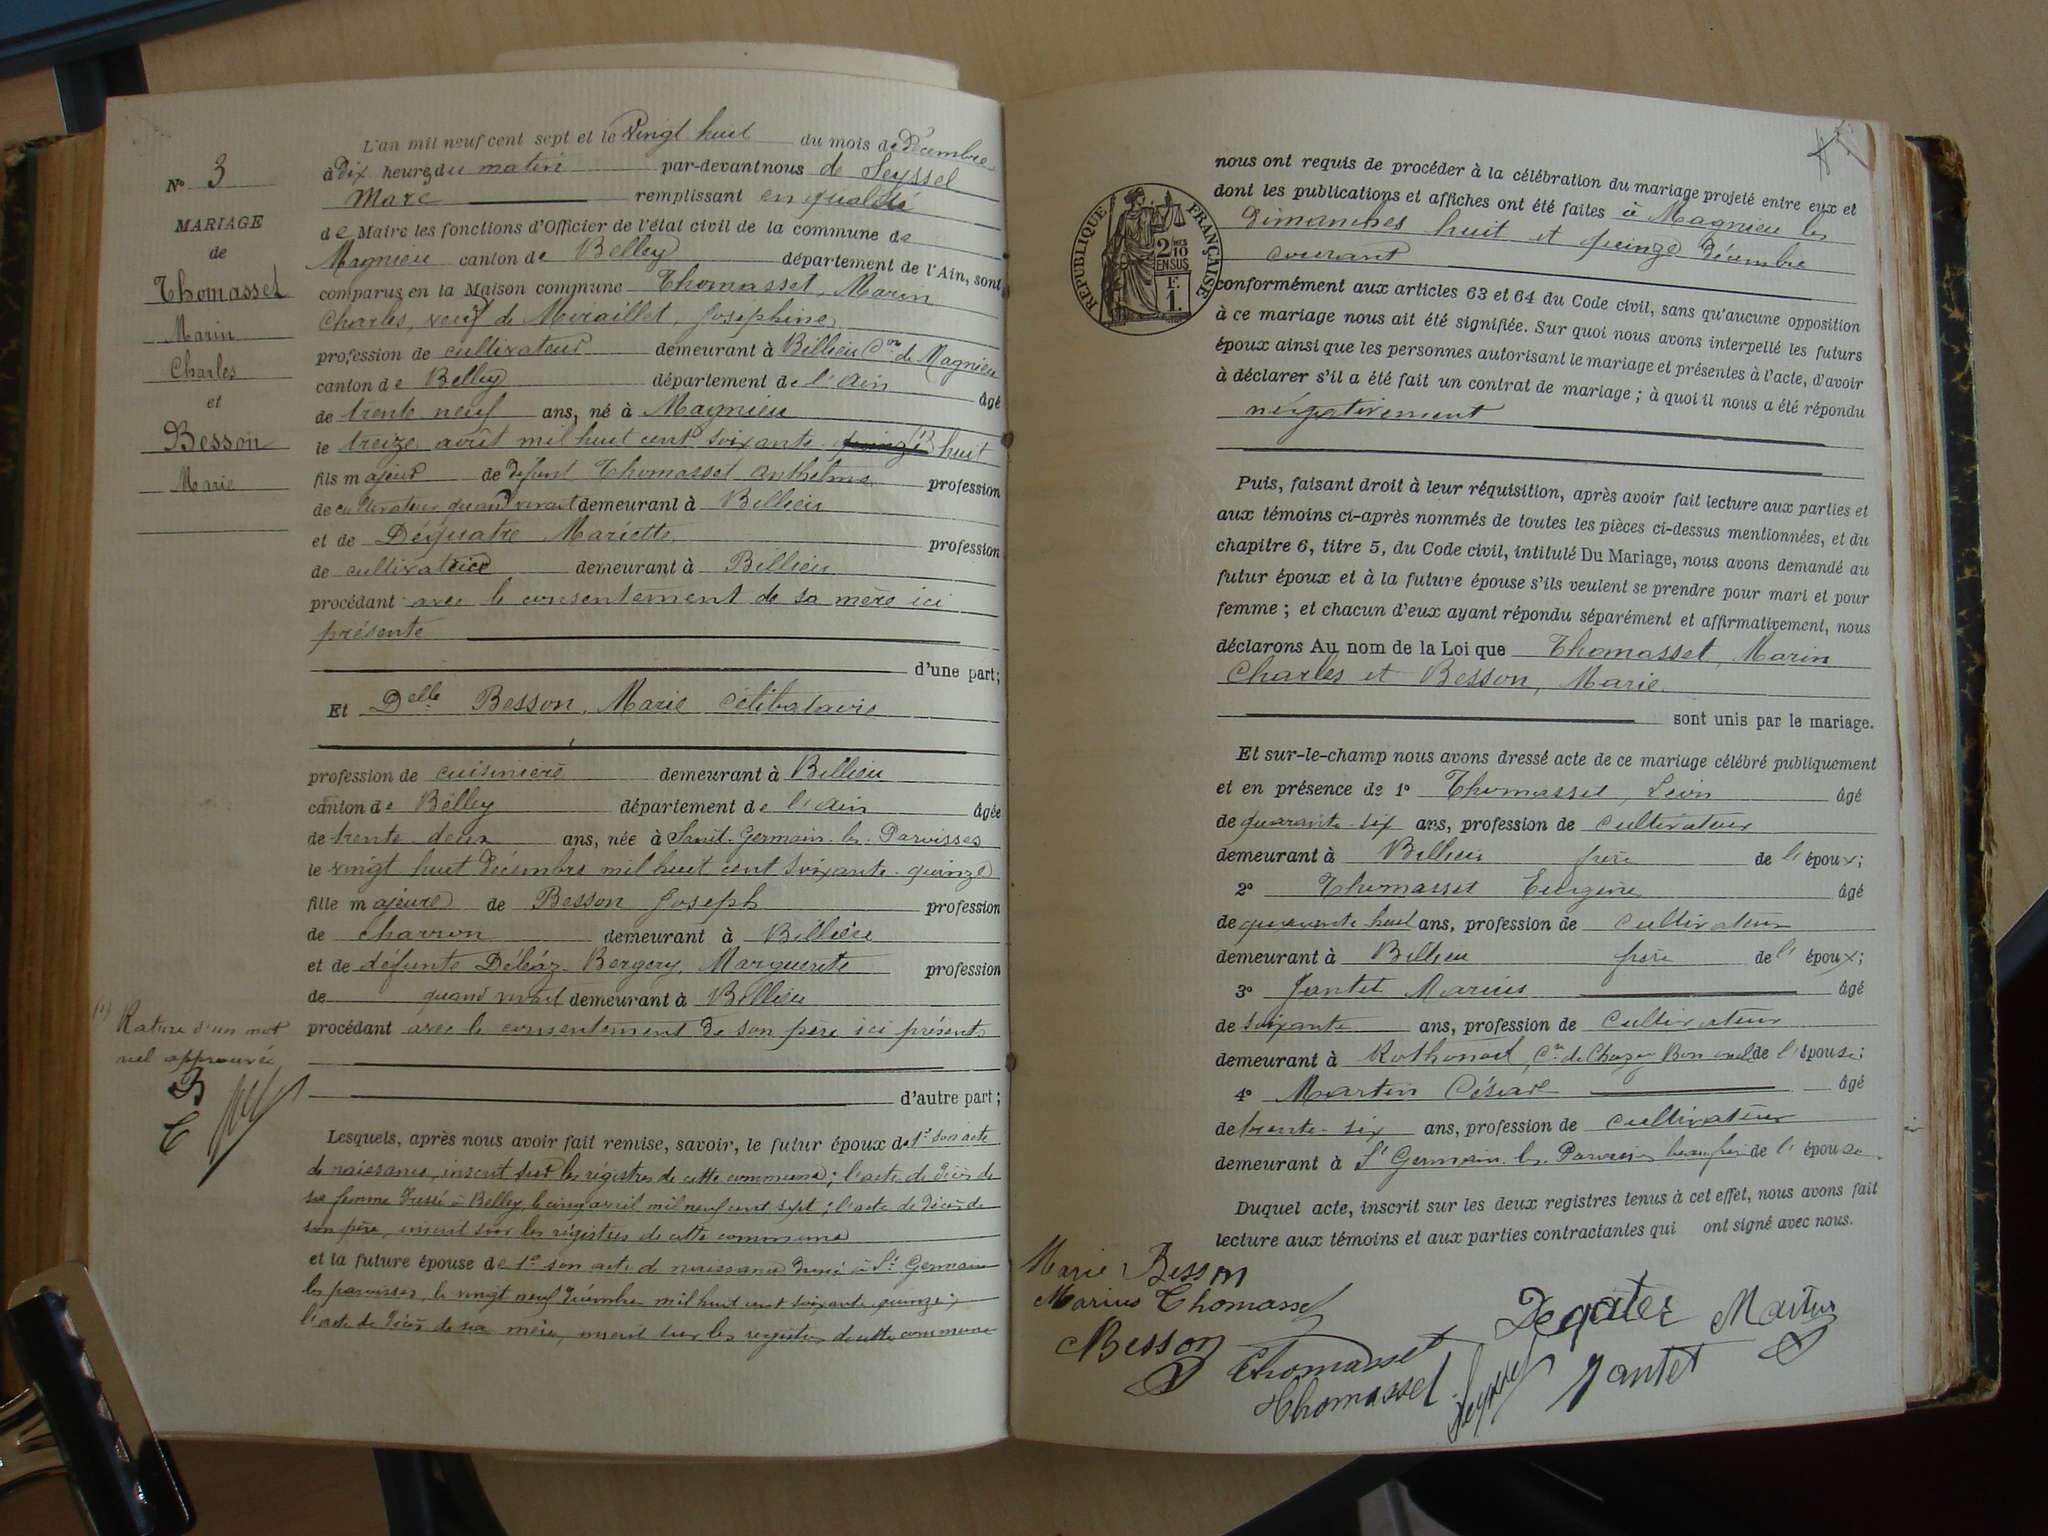 L'an mil neuf cent sept et le Vingt huit du mois de Décembre
à Dix heures du matin par-devant nous de Seyssel
Marc remplissant en qualité
de Maire les fonctions d'Officier de l'état civil de la commune de
Magnieu canton de Belley département de l'Ain, sont
comparus en la Maison commune Thomasset, Marin
Charles, veuf de Miraillet, Josephine,
profession de cultivateur demeurant à Billieu Cne de Magnieu
canton de Belley département de l'Ain âgé
de trente neuf ans, né à Magnieu
le treize août mil huit cent soixante quinze (1) huit
fils majeur de défunt Thomasset Anthelme profession
de cultivateur quand vivant demeurant à Billieu
et de Déquatre Mariette, profession
de cultivatrice demeurant à Billieu
procédant avec le consentement de sa mère ici
présente
d'une part;
Et Delle Besson, Marie célibataire
profession de cuisinière demeurant à Billieu
canton de Belley département de l'Ain âgée
de trente deux ans, née à Saint-Germain-les-Paroisses
le vingt huit Décembre mil huit cent soixante-quinze
fille majeure de Besson Joseph profession
de charron demeurant à Billieu
et de défunte Déléaz-Bergery, Marguerite profession
de quand vivait demeurant à Billieu
procédant avec le consentement de son père ici présent
d'autre part;
Lesquels, après nous avoir fait remise, savoir, le futur époux de 1° son acte
de naissance, inscrit sur les régistres de cette commune; l'acte de décès de
sa femme dressé à Belley, le cinq avril mil neuf cent sept; l'acte de décès de
son père, inscrit sur les régistres de cette commune
et la future épouse de 1° son acte de naissance dressé à St Germain
les paroisses, le vingt neuf Décembre mil huit cent soixante quinze;
l'acte de décès de sa mère, inscrit sur les registres de cette commune
N° 3
MARIAGE
de
Thomasset
Marin
Charles
et
Besson
Marie
(1) Rature d'un mot
nul approuvée
B
T
nous ont requis de procéder à la célébration du mariage projeté entre eux et
dont les publications et affiches ont été faites à Magnieu les
Dimanches huit et quinze Décembre
courant
conformément aux articles 63 et 64 du Code civil, sans qu'aucune opposition
à ce mariage nous ait été signifiée. Sur quoi nous avons interpellé les futurs
époux ainsi que les personnes autorisant le mariage et présentes à l'acte, d'avoir
à déclarer s'il a été fait un contrat de mariage; à quoi il nous a été répondu
négativement
Puis, faisant droit à leur réquisition, après avoir fait lecture aux parties et
aux témoins ci-après nommés de toutes les pièces ci-dessus mentionnées, et du
chapitre 6, titre 5, du Code civil, intitulé Du Mariage, nous avons demandé au
futur époux et à la future épouse s'ils veulent se prendre pour mari et pour
femme; et chacun d'eux ayant répondu séparément et affirmativement, nous
déclarons Au nom de la Loi que Thomasset, Marin
Charles et Besson, Marie
sont unis par le mariage.
Et sur-le-champ nous avons dressé acte de ce mariage célébré publiquement
et en présence de 1° Thomasset, Léon âgé
de quarante-six ans, profession de cultivateur
demeurant à Billieu frère de l'époux;
2° Thomasset Eugène âgé
de quarante huit ans, profession de cultivateur
demeurant à Billieu frère de l'époux;
3° Jantet Marius âgé
de soixante ans, profession de cultivateur
demeurant à Rothonod, Cne de Chazey Bons de l'épouse;
4° Martin César âgé
de trente-six ans, profession de cultivateur
demeurant à St Germain-les-Paroisses beau frère de l'épouse
Duquel acte, inscrit sur les deux registres tenus à cet effet, nous avons fait
lecture aux témoins et aux parties contractantes qui ont signé avec nous.
RÉPUBLIQUE FRANÇAISE
2/10
EN SUS
F.
1
Marie Besson
Marius Thomasset
Besson
Thomasset
Thomasset
Degater
Martin
Seyssel
Jantet